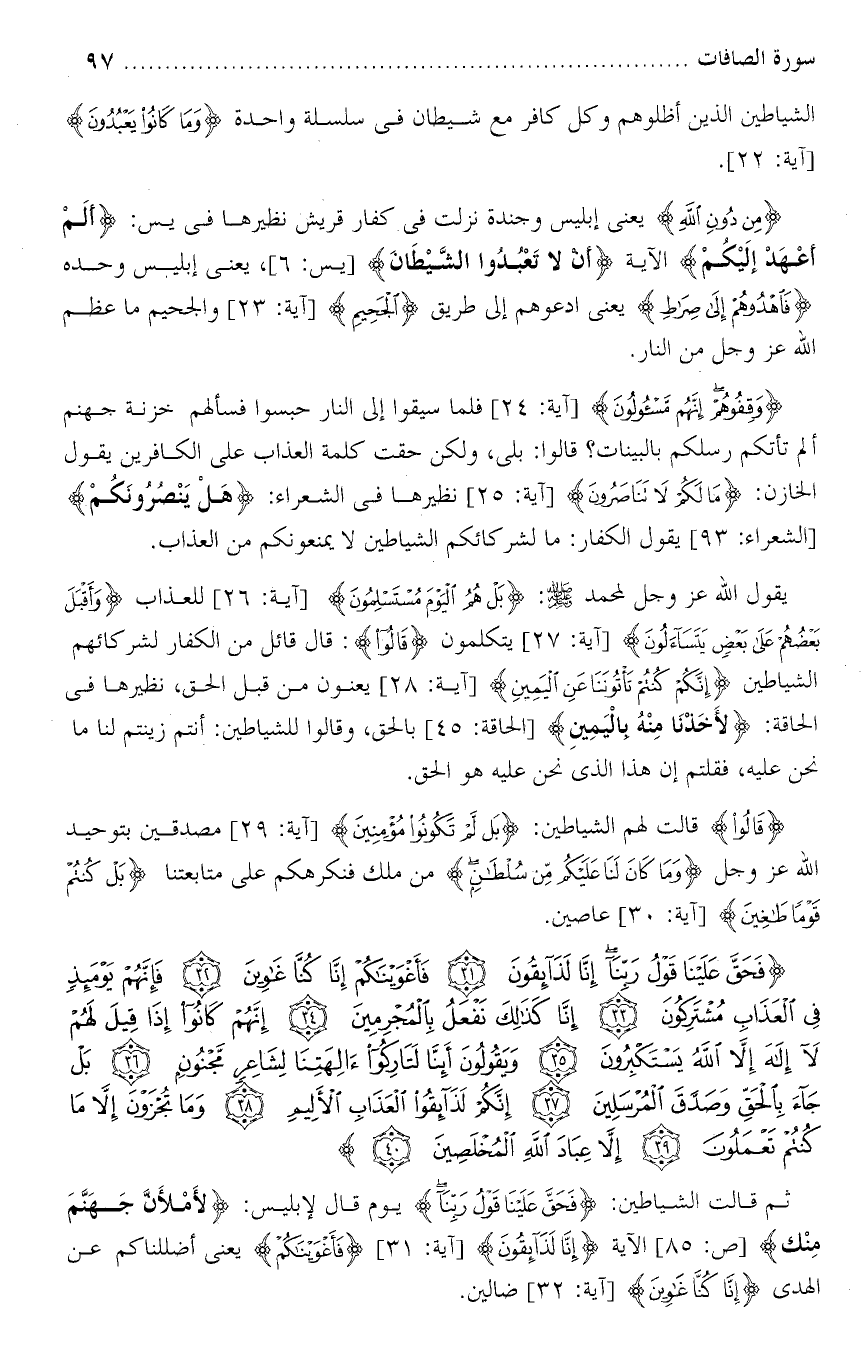 سورة الصافات ................................................................ ٩٧
الشياطين الذين أظلوهم وكل كافر مع شيطان فى سلسلة واحدة ﴿وَمَا كَانُوا۟ يَعْبُدُونَ﴾
[آية: ٢٢].
﴿مِن دُونِ ٱللَّهِ﴾ يعنى إبليس وجندة نزلت فى كفار قريش نظيرها فى يس: ﴿أَلَمْ
أَعْهَدْ إِلَيْكُمْ﴾ الآية ﴿أَنْ لا تَعْبُدُوا الشَّيْطَانَ﴾ [يس: ٦]، يعنى إبليس وحده
﴿فَٱهْدُوهُمْ إِلَىٰ صِرَٰطِ﴾ يعنى ادعوهم إلى طريق ﴿ٱلْجَحِيمِ﴾ [آية: ٢٣] والجحيم ما عظم
الله عز وجل من النار.
﴿وَقِفُوهُمْ ۖ إِنَّهُم مَّسْـُٔولُونَ﴾ [آية: ٢٤] فلما سيقوا إلى النار حبسوا فسألهم خزنة جهنم
ألم تأتكم رسلكم بالبينات؟ قالوا: بلى، ولكن حقت كلمة العذاب على الكافرين يقول
الخازن: ﴿مَا لَكُمْ لَا تَنَاصَرُونَ﴾ [آية: ٢٥] نظيرها فى الشعراء: ﴿هَلْ يَنْصُرُونَكُمْ﴾
[الشعراء: ٩٣] يقول الكفار: ما لشركائكم الشياطين لا يمنعونكم من العذاب.
يقول الله عز وجل لمحمد ﷺ: ﴿بَلْ هُمُ ٱلْيَوْمَ مُسْتَسْلِمُونَ﴾ [آية: ٢٦] للعذاب ﴿وَأَقْبَلَ
بَعْضُهُمْ عَلَىٰ بَعْضٍ يَتَسَآءَلُونَ﴾ [آية: ٢٧] يتكلمون ﴿قَالُوٓا۟﴾: قال قائل من الكفار لشركائهم
الشياطين ﴿إِنَّكُمْ كُنتُمْ تَأْتُونَنَا عَنِ ٱلْيَمِينِ﴾ [آية: ٢٨] يعنون من قبل الحق، نظيرها فى
الحاقة: ﴿لأَخَذْنَا مِنْهُ بِالْيَمِينِ﴾ [الحاقة: ٤٥] بالحق، وقالوا للشياطين: أنتم زينتم لنا ما
نحن عليه، فقلتم إن هذا الذى نحن عليه هو الحق.
﴿قَالُوا۟﴾ قالت لهم الشياطين: ﴿بَل لَّمْ تَكُونُوا۟ مُؤْمِنِينَ﴾ [آية: ٢٩] مصدقين بتوحيد
الله عز وجل ﴿وَمَا كَانَ لَنَا عَلَيْكُم مِّن سُلْطَٰنٍۭ ۖ﴾ من ملك فنكرهكم على متابعتنا ﴿بَلْ كُنتُمْ
قَوْمًا طَٰغِينَ﴾ [آية: ٣٠] عاصين.
﴿فَحَقَّ عَلَيْنَا قَوْلُ رَبِّنَآ ۖ إِنَّا لَذَآئِقُونَ ٣١ فَأَغْوَيْنَٰكُمْ إِنَّا كُنَّا غَٰوِينَ ٣٢ فَإِنَّهُمْ يَوْمَئِذٍ
فِى ٱلْعَذَابِ مُشْتَرِكُونَ ٣٣ إِنَّا كَذَٰلِكَ نَفْعَلُ بِٱلْمُجْرِمِينَ ٣٤ إِنَّهُمْ كَانُوٓا۟ إِذَا قِيلَ لَهُمْ
لَآ إِلَٰهَ إِلَّا ٱللَّهُ يَسْتَكْبِرُونَ ٣٥ وَيَقُولُونَ أَئِنَّا لَتَارِكُوٓا۟ ءَالِهَتِنَا لِشَاعِرٍ مَّجْنُونٍۭ ٣٦ بَلْ
جَآءَ بِٱلْحَقِّ وَصَدَّقَ ٱلْمُرْسَلِينَ ٣٧ إِنَّكُمْ لَذَآئِقُوا۟ ٱلْعَذَابِ ٱلْأَلِيمِ ٣٨ وَمَا تُجْزَوْنَ إِلَّا مَا
كُنتُمْ تَعْمَلُونَ ٣٩ إِلَّا عِبَادَ ٱللَّهِ ٱلْمُخْلَصِينَ ٤٠ ﴾
ثم قالت الشياطين: ﴿فَحَقَّ عَلَيْنَا قَوْلُ رَبِّنَآ ۖ﴾ يوم قال لإبليس: ﴿لأَمْلأَنَّ جَهَنَّمَ
مِنْك﴾ [ص: ٨٥] الآية ﴿إِنَّا لَذَآئِقُونَ﴾ [آية: ٣١] ﴿فَأَغْوَيْنَٰكُمْ﴾ يعنى أضللناكم عن
الهدى ﴿إِنَّا كُنَّا غَٰوِينَ﴾ [آية: ٣٢] ضالين.